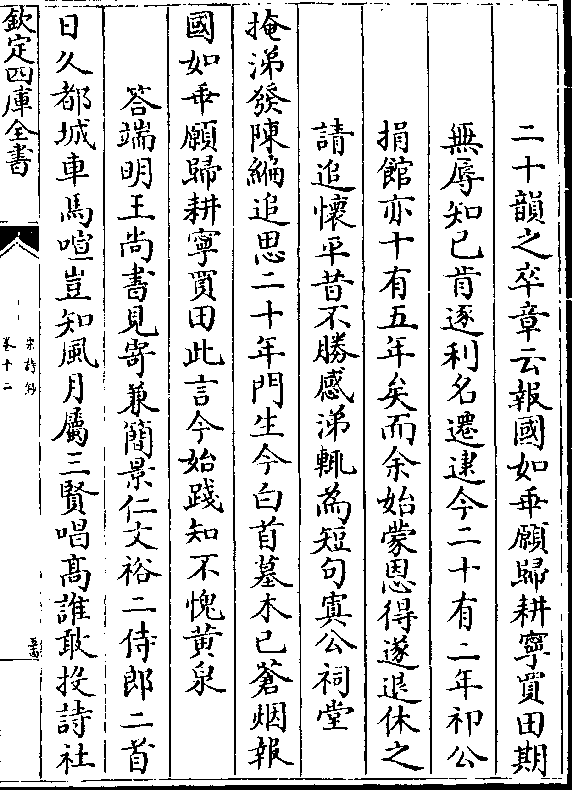 二十韻之卒章云報國如乖願歸耕寧買田期
無辱知已肯逐利名遷逮今二十有二年祁公
捐館亦十有五年矣而余始蒙恩得遂退休之
請追懷平昔不勝感涕輒為短句寘公祠堂
掩涕發陳編追思二十年門生今白首墓木已蒼烟報
國如乖願歸耕寧買田此言今始踐知不愧黄泉
答端明王尚書見寄兼簡景仁文裕二侍郎二首
日久都城車馬喧豈知風月屬三賢唱髙誰敢投詩社
欽定四庫全書
宋詩鈔
卷十二